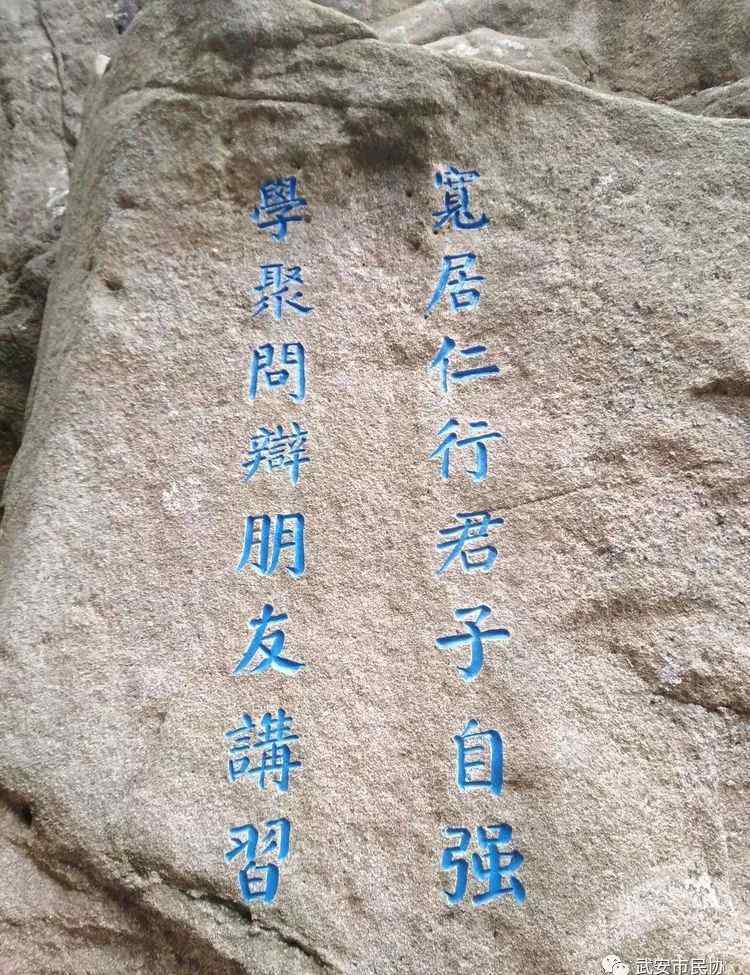 寬居仁行君子自强
學聚問辯朋友講習
武安市民协